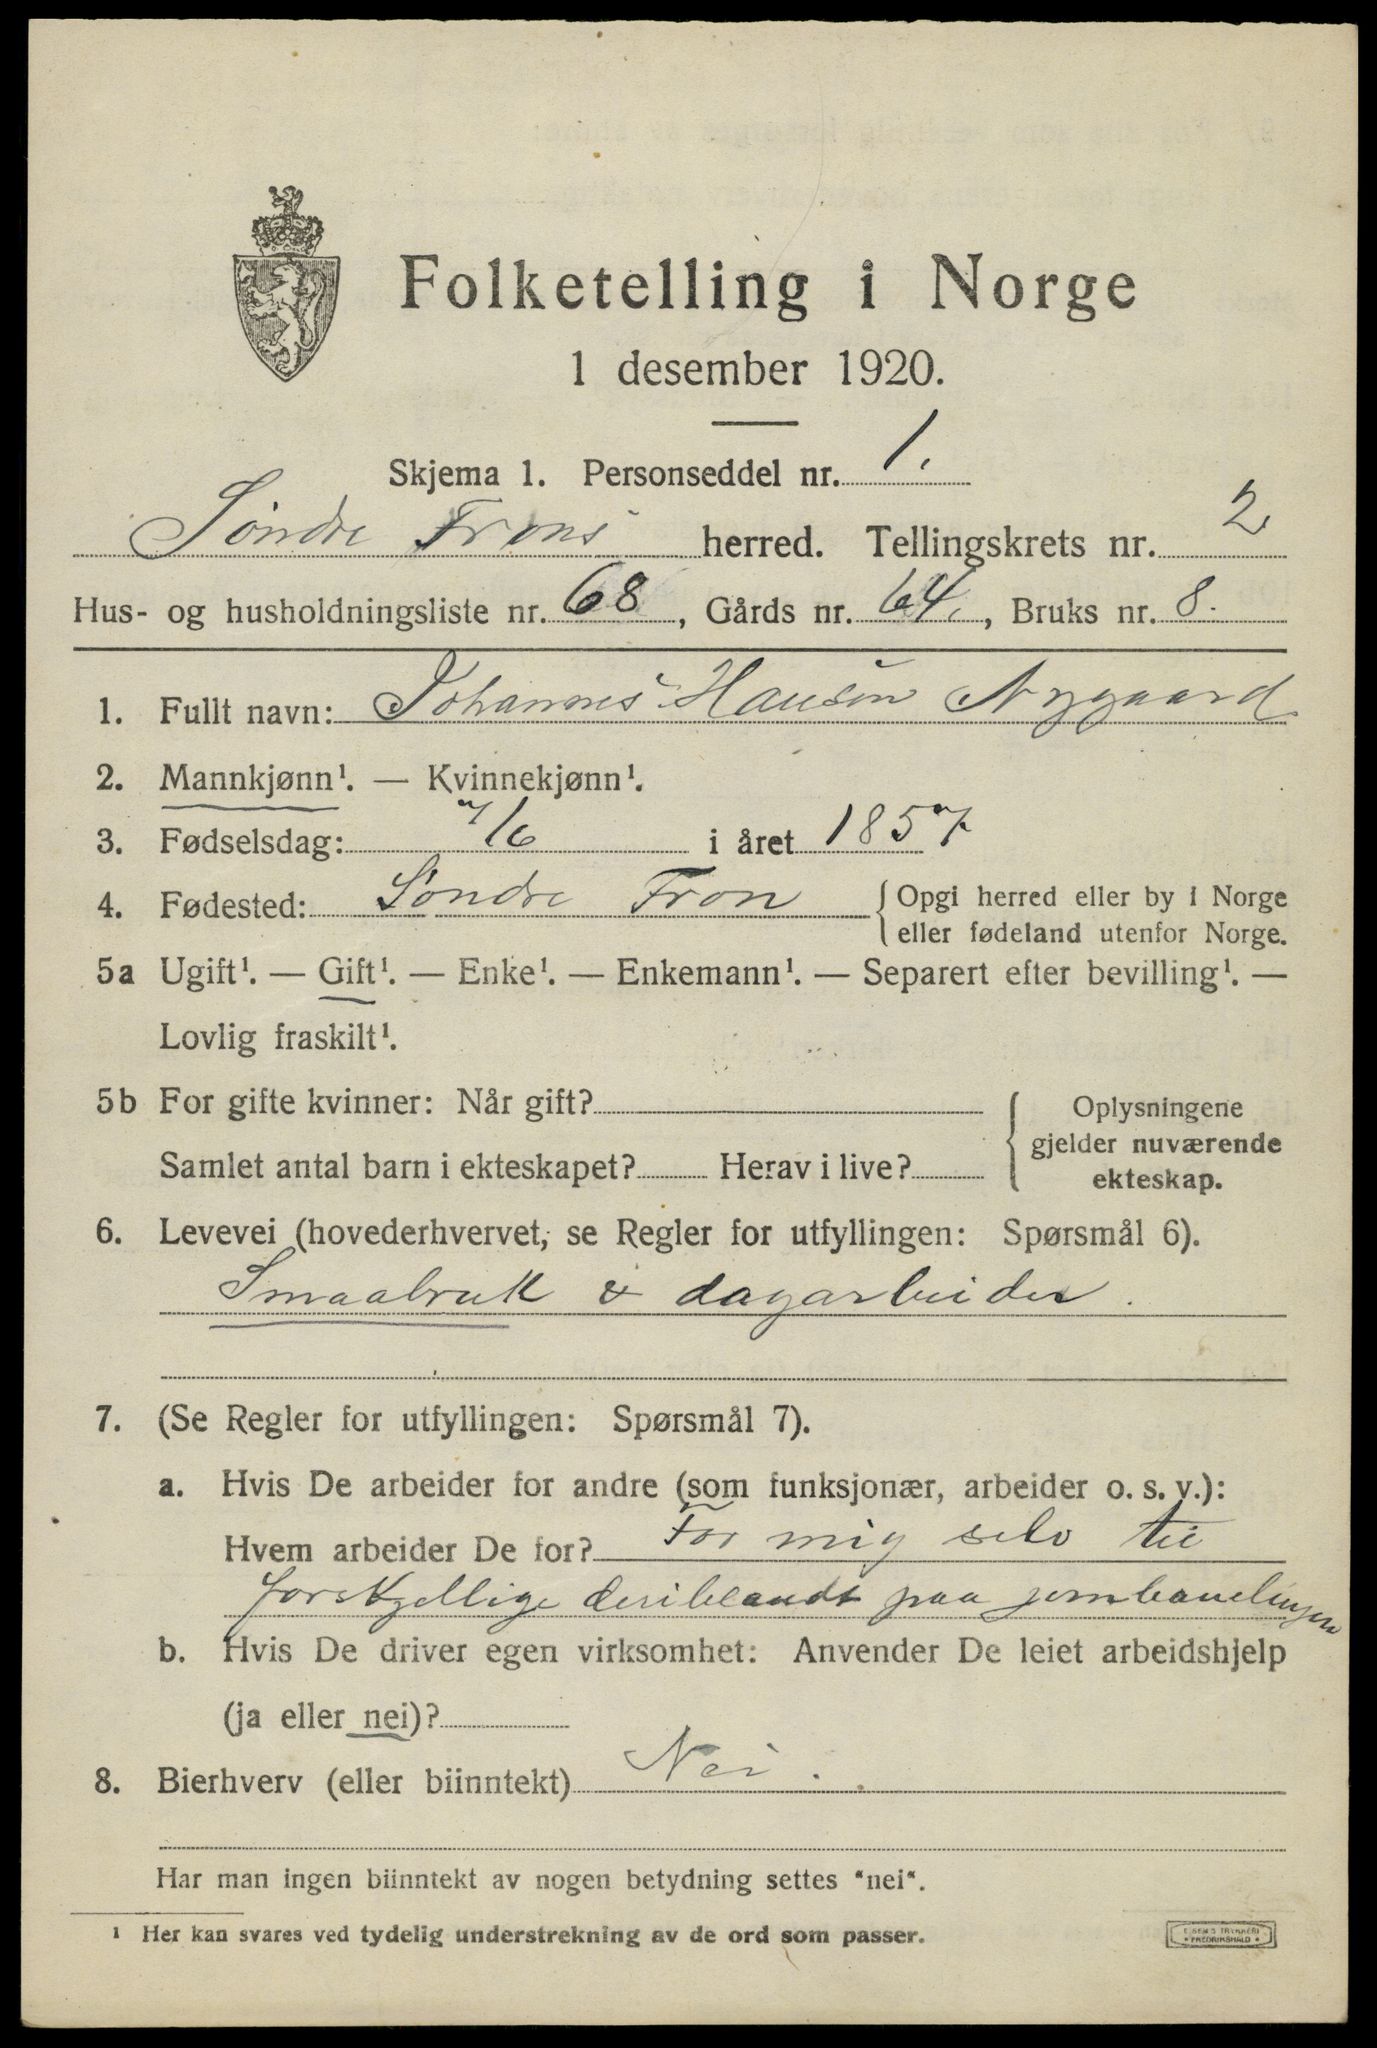 Folketelling i Norge
1 desember 1920.
Skjema 1. Personseddel nr. 1.
Søndre Frons herred. Tellingskrets nr. 2
Hus- og husholdningsliste nr. 68, Gårds nr. 64, Bruks nr. 8.
1. Fullt navn: Johannes Hansen Nygaard
2. Mannkjønn¹. — Kvinnekjønn¹.
3. Fødselsdag: 7/6 i året 1857
4. Fødested: Søndre Fron { Opgi herred eller by i Norge
eller fødeland utenfor Norge.
5a Ugift¹. — Gift¹. — Enke¹. — Enkemann¹. — Separert efter bevilling¹. —
Lovlig fraskilt¹.
5b For gifte kvinner: Når gift? { Oplysningene
gjelder nuværende
ekteskap.
Samlet antal barn i ekteskapet? Herav i live?
6. Levevei (hovederhvervet, se Regler for utfyllingen: Spørsmål 6).
Smaabruk & dagarbeider.
7. (Se Regler for utfyllingen: Spørsmål 7).
a. Hvis De arbeider for andre (som funksjonær, arbeider o. s. v.):
Hvem arbeider De for? For mig selv til
forskjellige deriblandt paa jernbanelinjen
b. Hvis De driver egen virksomhet: Anvender De leiet arbeidshjelp
(ja eller nei)?
8. Bierhverv (eller biinntekt) Nei.
Har man ingen biinntekt av nogen betydning settes "nei".
¹ Her kan svares ved tydelig understrekning av de ord som passer.
TRYKKERI
FREDRIKSHALD